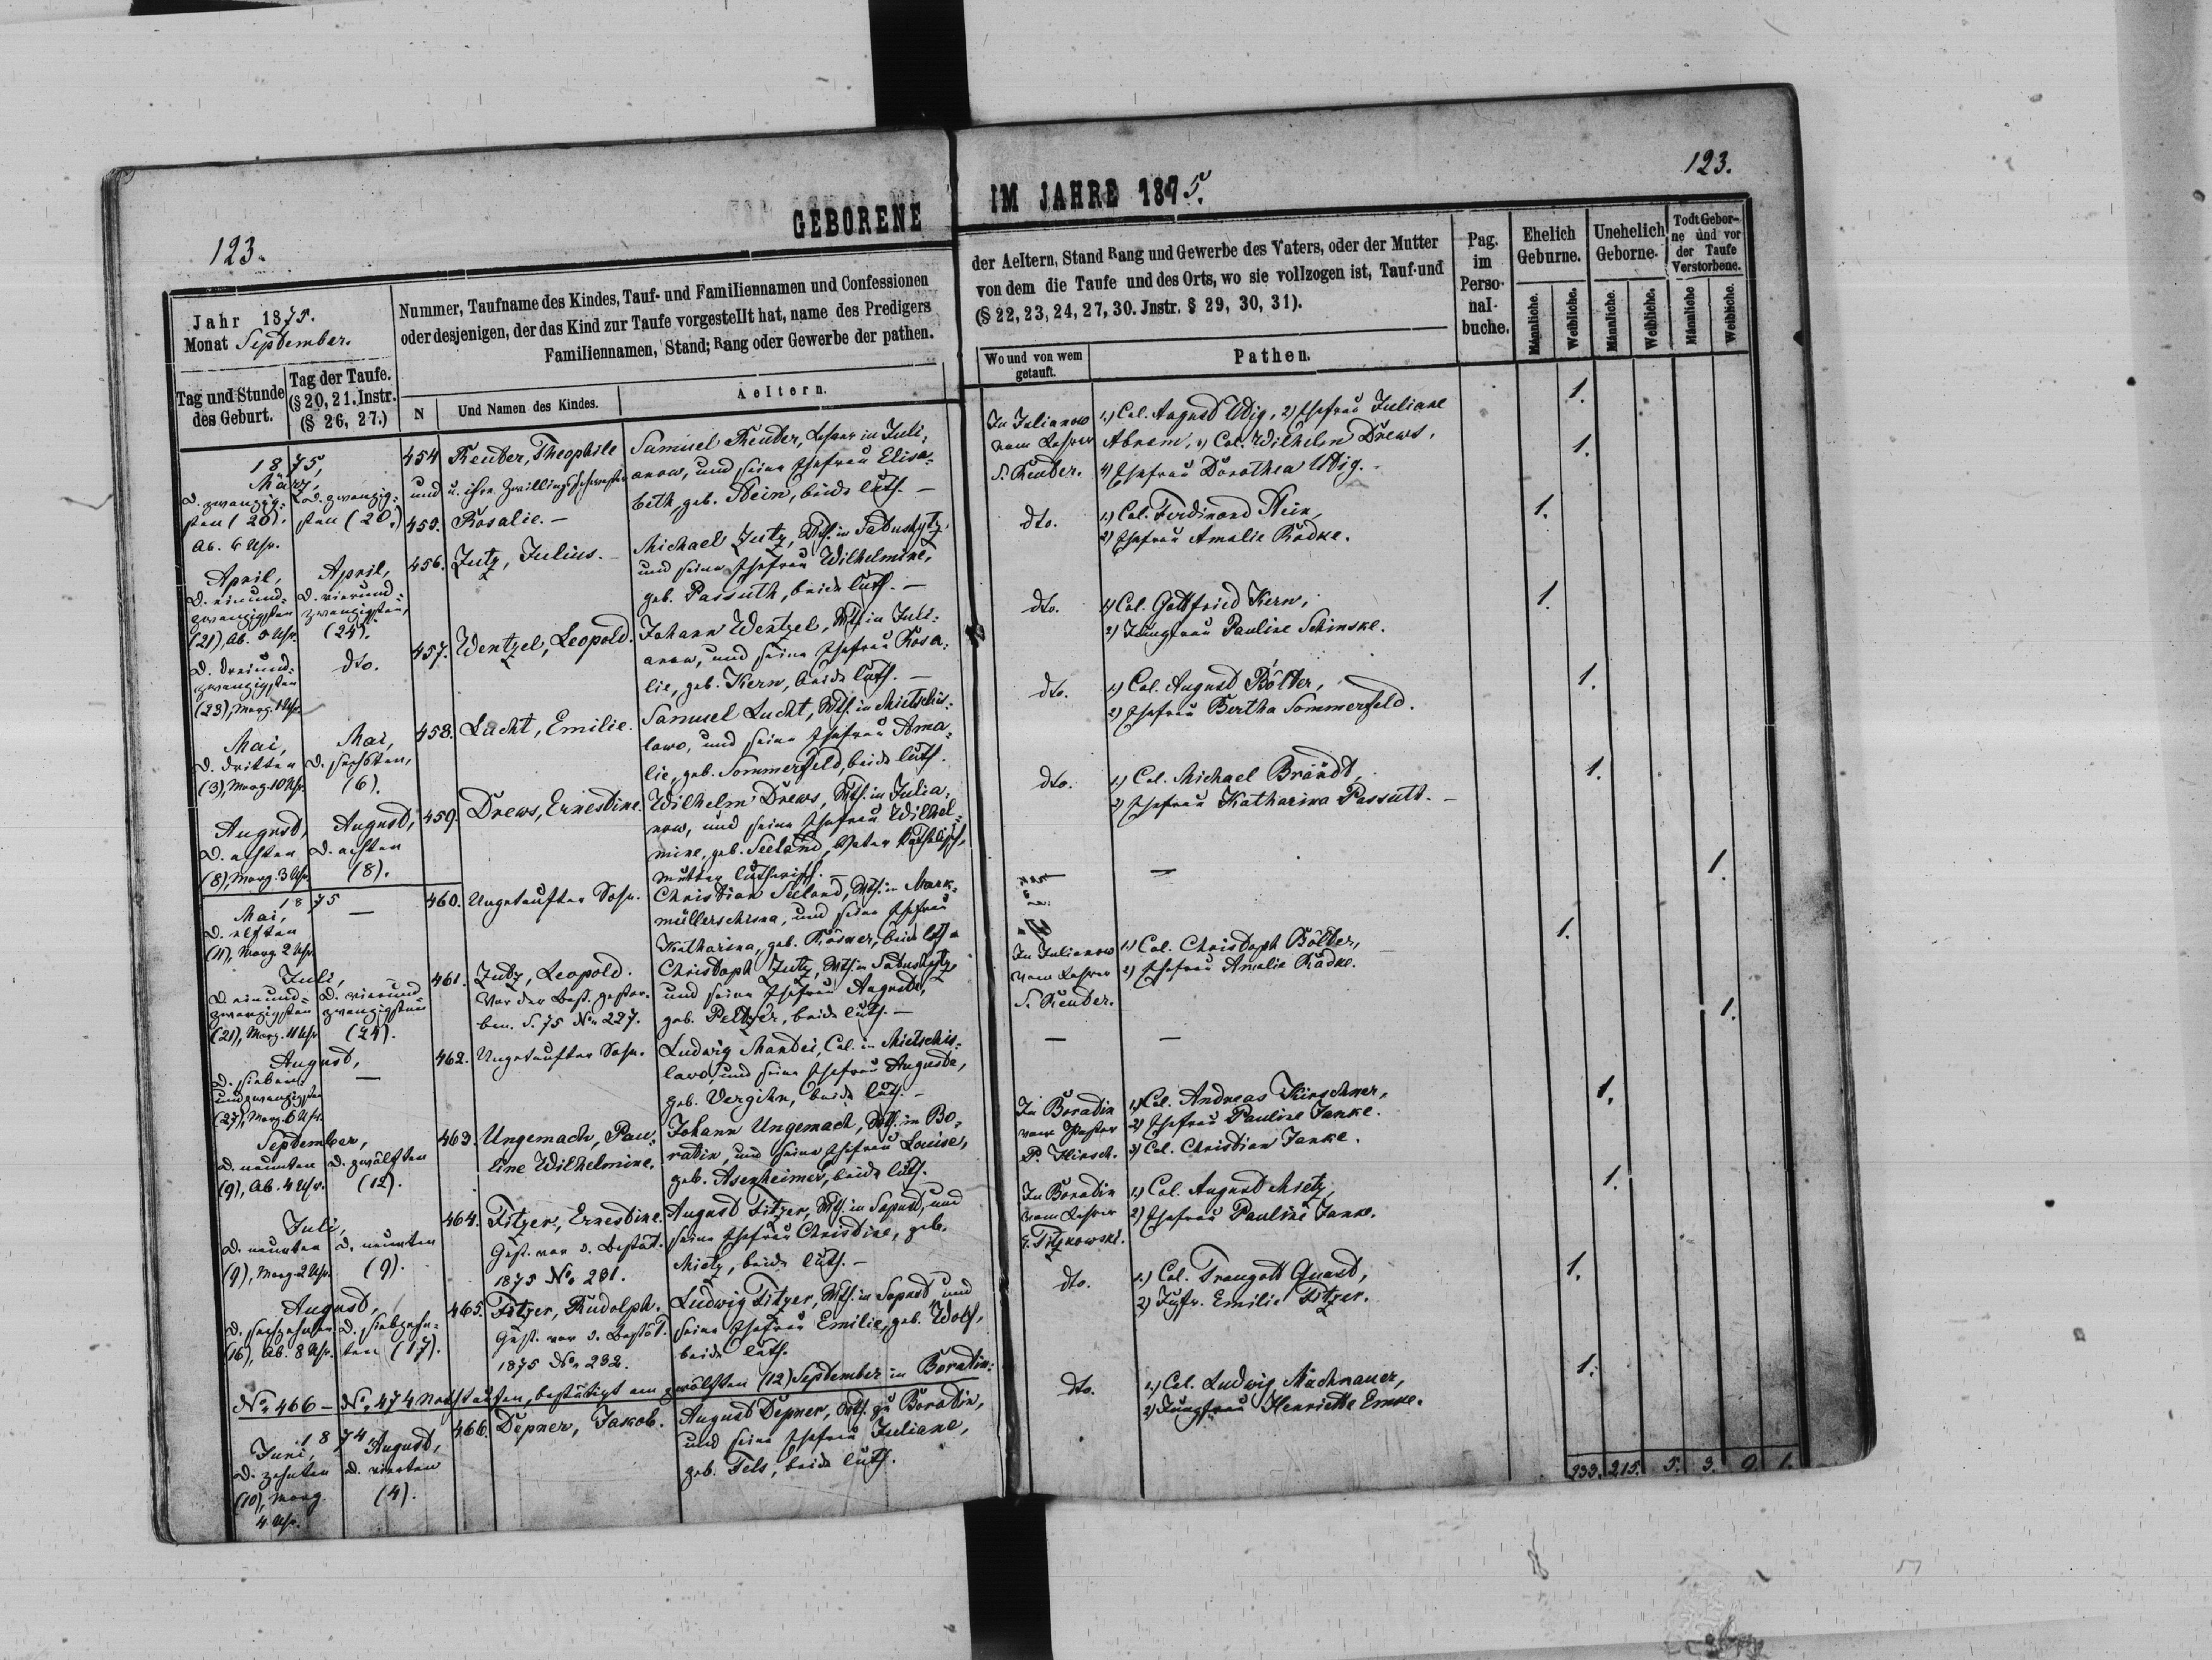 123.
GEBORENE
Jahr 1875.
Monat September.
Nummer, Taufname des Kindes, Tauf- und Familiennamen und Confessionen
oder desjenigen, der das Kind zur Taufe vorgestellt hat, name des Predigers
Familiennamen, Stand; Rang oder Gewerbe der pathen.
Tag und Stunde
des Geburt.
Tag der Taufe.
(§ 20, 21. Instr.
(§ 26, 27.)
N
Und Namen des Kindes.
Aeltern.
1875,
März,
d. zwanzig-
sten (20).
Ab. 6 Uhr.
d. zwanzig-
sten (20.)
454
und
455.
Reuter, Theophile
u. ihre Zwillingsschwester
Rosalie. –
Samuel Reuter, Lehrer in Juli-
anow, und seine Ehefrau Elisa-
beth, geb. Stein, beide luth. –
April,
d. einund-
zwanzigsten
(21), Ab. 5 Uhr.
April,
d. vierund-
zwanzigsten,
(24).
456.
Jutz, Julius. –
Michael Jutz,
und seine Ehefrau Wilhelmine,
geb. Passuth, beide luth. –
d. dreiund-
zwanzigsten
(23), Morg. 1 Uhr
dto.
457.
Wentzel, Leopold.
Johann Wentzel, Wth. in Juli-
anow, und seine Ehefrau Rosa-
lie, geb. Kern, beide luth. –
Mai,
d. dritten
(3), Morg. 10 Uhr.
Mai,
d. sechsten,
(6).
458.
Lucht, Emilie.
Samuel Lucht, Wth. in Mietschis-
lawo, und seine Ehefrau Ama-
lie, geb. Sommerfeld, beide luth.
August,
d. achten
(8), Morg. 3 Uhr.
August,
d. achten
(8).
459.
Drews, Ernestine.
Wilhelm Drews, Wth. in Julia-
now, und seine Ehefrau Wilhel-
mine, geb. Seeland, Vater katholisch,
Mutter lutherisch. –
1875
Mai,
d. elften
(11), Morg. 2 Uhr
—
460.
Ungetaufter Sohn.
Christian Seeland, Wth. in Mark-
müllerschisna, und seine Ehefrau
Katharina, geb. Rösner, beide luth.
Juli,
d. einund-
zwanzigsten
(21), Morg. 11 Uhr
d. vierund-
zwanzigsten
(24).
461.
Jutz, Leopold.
Vor der Best. gestor-
ben. S. 75 No. 227.
Christoph Jutz, Wth. in
und seine Ehefrau Auguste,
geb. Peltzer, beide luth. –
August,
d. sieben-
undzwanzigsten
(27), Morg. 6 Uhr.
—
462.
Ungetaufter Sohn.
Ludwig Mandei, Col. in Mietschis-
lawo, und seine Ehefrau Auguste,
geb. Vergihn, beide luth. –
September,
d. neunten
(9), Ab. 4 Uhr.
d. zwölften
(12).
463.
Ungemach, Pau-
line Wilhelmine.
Johann Ungemach, Wth. in Bo-
ratin, und seine Ehefrau Louise,
geb. Asenheimer, beide luth.
Juli,
d. neunten
(9), Morg. 2 Uhr.
d. neunten
(9).
464.
Fitzer, Ernestine.
Gest. vor d. Bestät.
1875 No. 231.
August Fitzer, Wth. in Sapust, und
seine Ehefrau Christine, geb.
Mietz, beide luth. –
August,
d. sechzehnten
(16), Ab. 8 Uhr.
d. siebzehn-
ten (17).
465.
Fitzer, Rudolph.
Gest. vor d. Bestät.
1875 No. 232.
Ludwig Fitzer, Wth. in Sapust und
seine Ehefrau Emilie, geb. Wolf,
beide luth.
No. 466 – No. 474 Nothtaufen, bestätigt am zwölften (12) September in Boratin:
1874
Juni,
d. zehnten
(10), Morg.
4 Uhr.
August,
d. vierten
(4).
466.
Depner, Jakob.
August Depner, Wth. zu Boratin,
und seine Ehefrau Juliane,
geb. Fels, beide luth.
IM JAHRE 1875.
123.
der Aeltern, Stand Rang und Gewerbe des Vaters, oder der Mutter
von dem die Taufe und des Orts, wo sie vollzogen ist, Tauf-und
(§ 22, 23, 24, 27, 30. Jnstr. § 29, 30, 31).
Wo und von wem
getauft.
Pathen.
Pag.
im
Perso-
nal-
buche.
Ehelich
Geburne.
Unehelich
Geborne.
Todt Gebor-
ne und vor
der Taufe
Verstorbene.
Männliche.
Weibliche.
Männliche.
Weibliche.
Männliche
Weibliche.
In Julianow
vom Lehrer
S. Reuter.
1.) Col. August Utig, 2) Ehefrau Juliane
Abram, 3) Col. Wilhelm Drews,
4) Ehefrau Dorothea Utig. –
1.
1.
dto.
1.) Col. Ferdinand Stein,
2) Ehefrau Amalie Radke.
1.
dto.
1) Col. Gottfried Kern,
2) Jungfrau Pauline Schinske.
1.
dto.
1.) Col. August Bölter,
2) Ehefrau Bertha Sommerfeld.
1.
dto.
1.) Col. Michael Brandt,
2) Ehefrau Katharina Passutt. –
1.
—
1.
In Julianow
vom Lehrer
S. Reuter.
1.) Col. Christoph Bölter,
2) Ehefrau Amalie Radke.
1.
—
—
1.
In Boratin
vom Pastor
P. Hirsch.
1.) Col. Andreas Kirschner,
2) Ehefrau Pauline Janke.
3) Col. Christian Janke.
1.
In Boratin
vom Lehrer
1.) Col. August Mietz,
2) Ehefrau Pauline Janke.
1.
dto.
1.) Col. Traugott Quast,
2) Jgfr. Emilie Fitzer.
1.
dto.
1.) Col. Ludwig Machnauer,
2) Jungfrau Henriette Emke.
1.
233. 215. 5. 3. 9. 1.